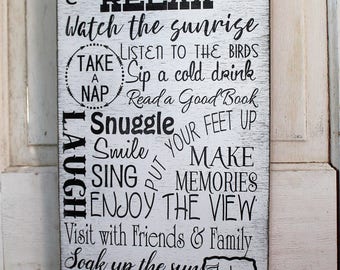 RELAX
Watch the sunrise
LISTEN TO THE BIRDS
TAKE
A
NAP
Sip a cold drink
Read a Good Book
LAUGH
Snuggle
PUT YOUR FEET UP
Smile
SING
MAKE
MEMORIES
ENJOY THE VIEW
Visit with Friends & Family
Soak up the sun